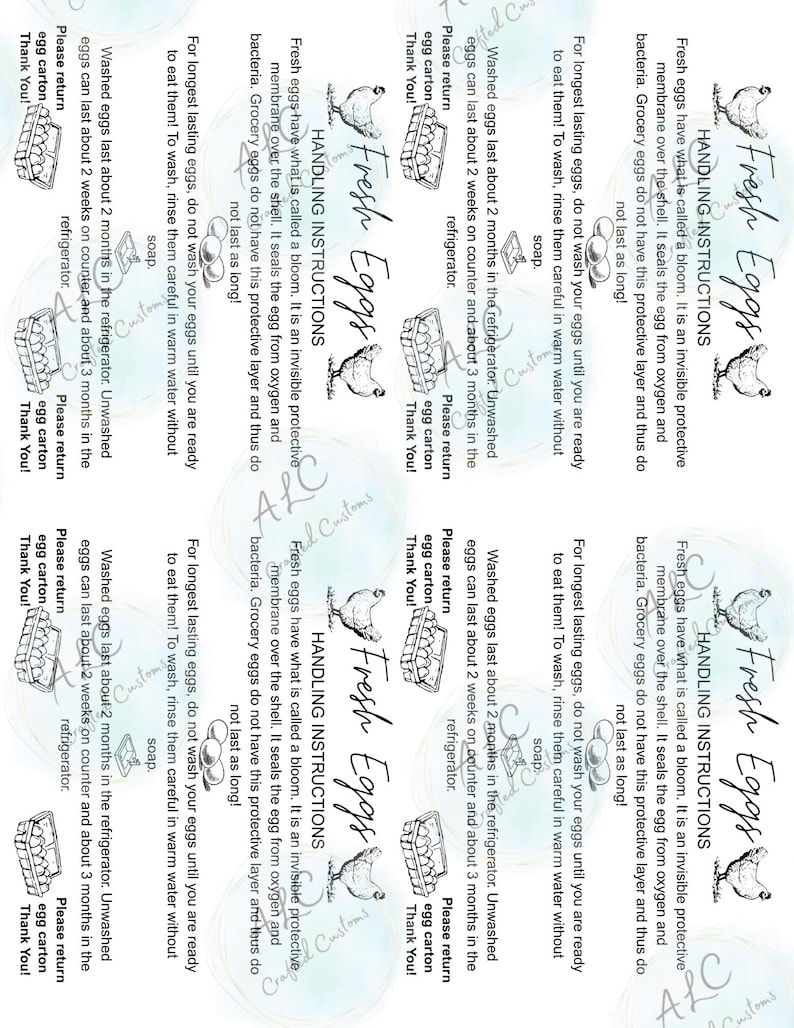 Fresh Eggs
HANDLING INSTRUCTIONS
Fresh eggs have what is called a bloom. It is an invisible protective
membrane over the shell. It seals the egg from oxygen and
bacteria. Grocery eggs do not have this protective layer and thus do
not last as long!
For longest lasting eggs, do not wash your eggs until you are ready
to eat them! To wash, rinse them careful in warm water without
soap.
Washed eggs last about 2 months in the refrigerator. Unwashed
eggs can last about 2 weeks on counter and about 3 months in the
refrigerator.
Please return
egg carton
Thank You!
Please return
egg carton
Thank You!
Fresh Eggs
HANDLING INSTRUCTIONS
Fresh eggs have what is called a bloom. It is an invisible protective
membrane over the shell. It seals the egg from oxygen and
bacteria. Grocery eggs do not have this protective layer and thus do
not last as long!
For longest lasting eggs, do not wash your eggs until you are ready
to eat them! To wash, rinse them careful in warm water without
soap.
Washed eggs last about 2 months in the refrigerator. Unwashed
eggs can last about 2 weeks on counter and about 3 months in the
refrigerator.
Please return
egg carton
Thank You!
Please return
egg carton
Thank You!
Fresh Eggs
HANDLING INSTRUCTIONS
Fresh eggs have what is called a bloom. It is an invisible protective
membrane over the shell. It seals the egg from oxygen and
bacteria. Grocery eggs do not have this protective layer and thus do
not last as long!
For longest lasting eggs, do not wash your eggs until you are ready
to eat them! To wash, rinse them careful in warm water without
soap.
Washed eggs last about 2 months in the refrigerator. Unwashed
eggs can last about 2 weeks on counter and about 3 months in the
refrigerator.
Please return
egg carton
Thank You!
Please return
egg carton
Thank You!
Fresh Eggs
HANDLING INSTRUCTIONS
Fresh eggs have what is called a bloom. It is an invisible protective
membrane over the shell. It seals the egg from oxygen and
bacteria. Grocery eggs do not have this protective layer and thus do
not last as long!
For longest lasting eggs, do not wash your eggs until you are ready
to eat them! To wash, rinse them careful in warm water without
soap.
Washed eggs last about 2 months in the refrigerator. Unwashed
eggs can last about 2 weeks on counter and about 3 months in the
refrigerator.
Please return
egg carton
Thank You!
Please return
egg carton
Thank You!
ALC
Crafted Customs
ALC
Crafted Customs
ALC
Crafted Customs
ALC
Crafted Customs
ALC
Crafted Customs
ALC
Crafted Customs
ALC
Crafted Customs
ALC
Crafted Customs
ALC
Crafted Customs
ALC
Crafted Customs
Crafted Customs